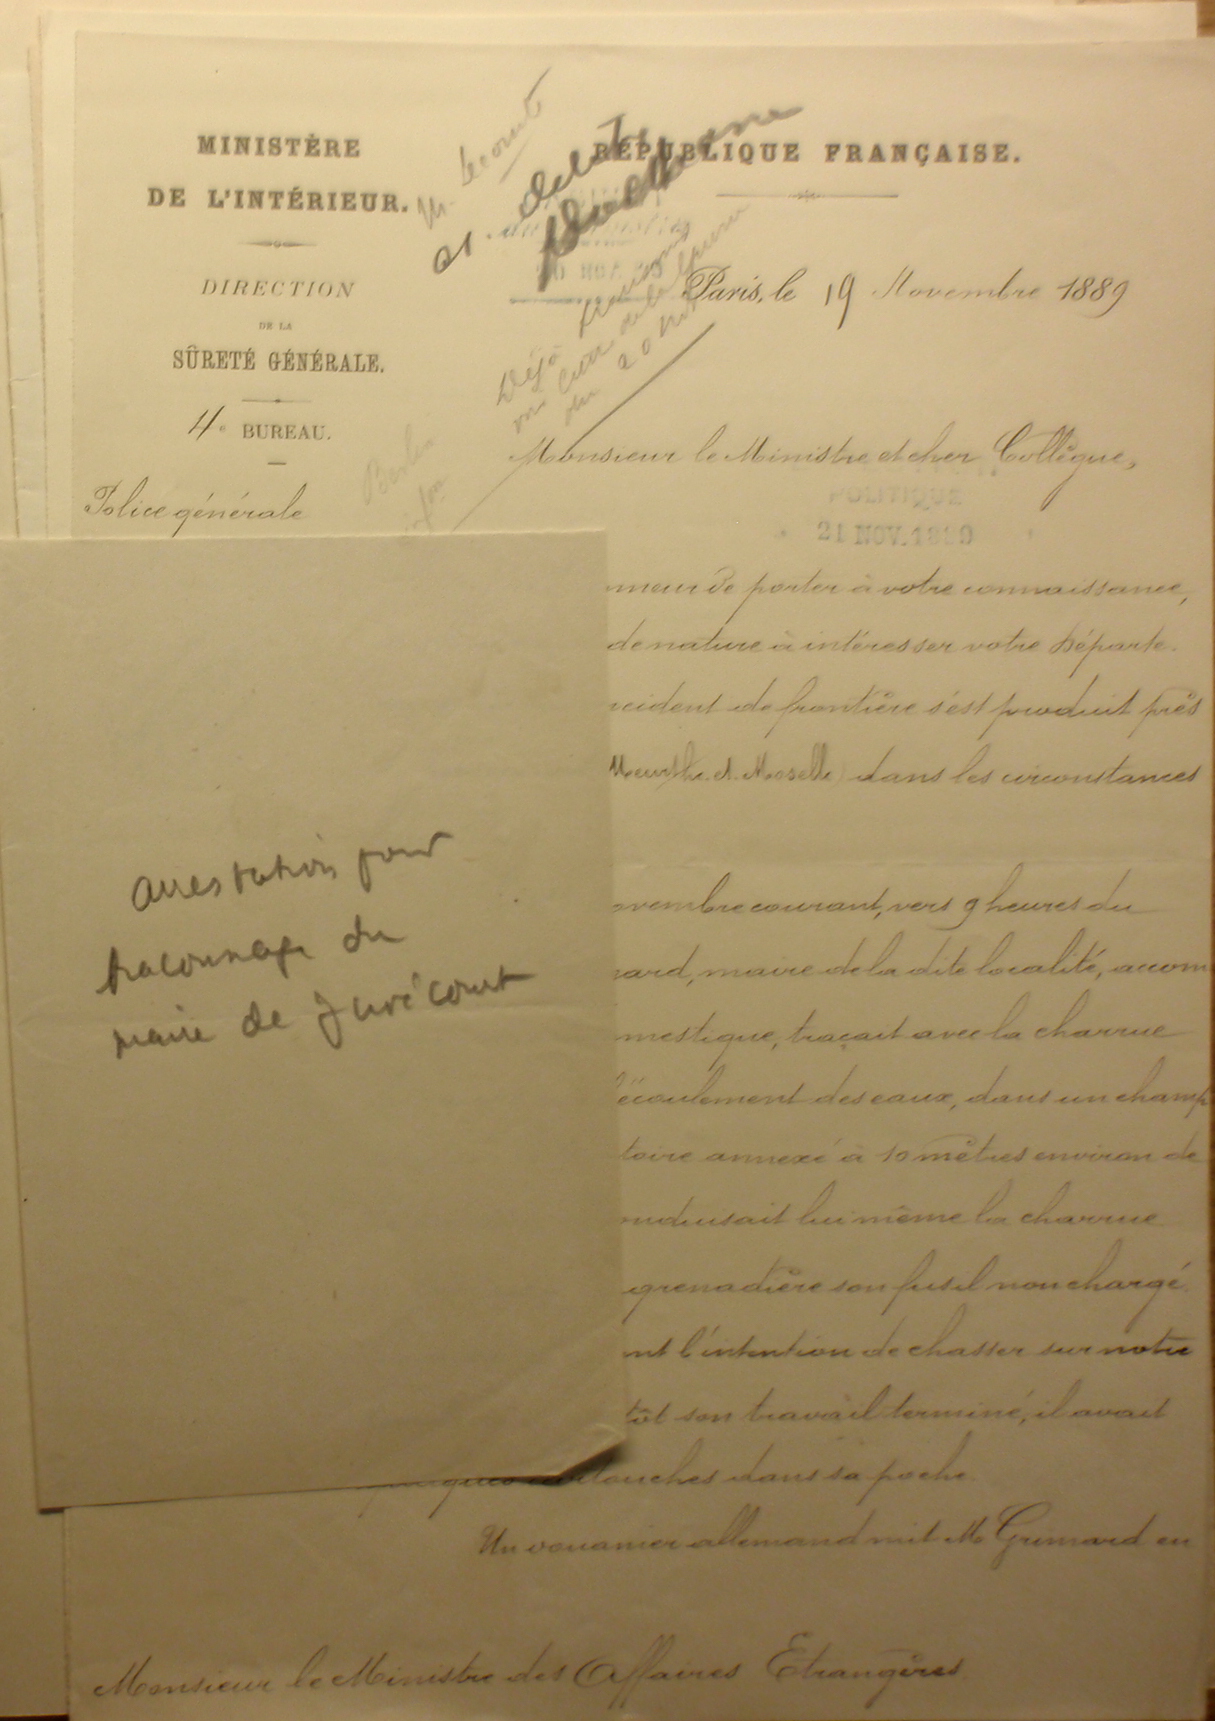 MINISTÈRE
DE L'INTÉRIEUR.
DIRECTION
DE LA
SÛRETÉ GÉNÉRALE.
4e BUREAU.
Police générale
RÉPUBLIQUE FRANÇAISE.
Paris, le 19 Novembre 1889
Déjà
du 20
Berlin
Monsieur le Ministre et cher Collègue,
POLITIQUE
21 NOV. 1889
nneur de porter à votre connaissance,
de nature à intéresser votre Départe-
ncident de frontière s'est produit près
Meurthe-et-Moselle) dans les circonstances
ovembre courant, vers 9 heures du
ard, maire de la dite localité, accom
mestique, traçait avec la charrue
l'écoulement des eaux, dans un champ
toire annexé à 10 mètres environ de
nduisait lui même la charrue
grenadière son fusil non chargé.
nt l'intention de chasser sur notre
tôt son travail terminé, il avait
quelques cartouches dans sa poche
Un douanier allemand mit M. Grimard en
Monsieur le Ministre des Affaires Etrangères
arrestation pour
braconnage du
maire de Juvécourt